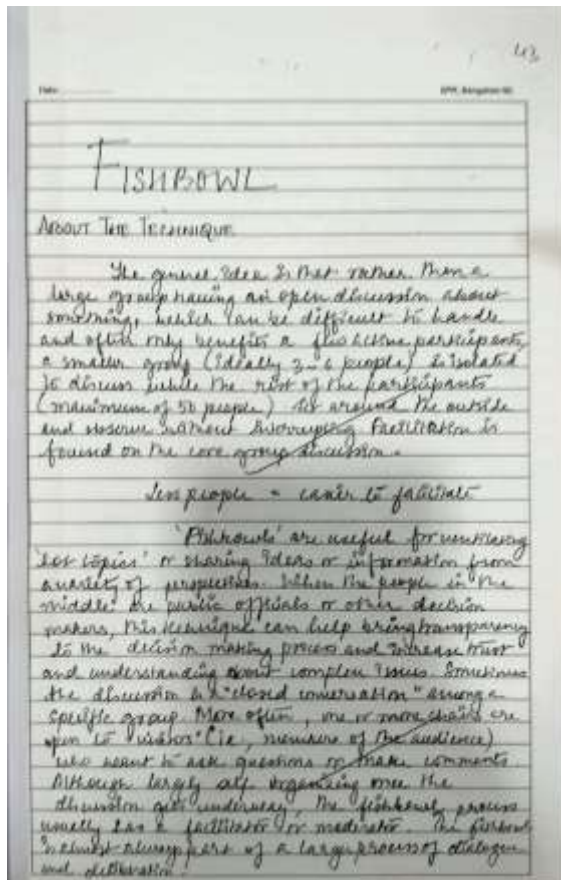 43
Date
FISHBOWL
ABOUT THE TECHNIQUE
The general idea is that rather than a
large group having an open discussion about
something, which can be difficult to handle
and often only benefits a few active participants,
a smaller group (ideally 3-6 people) is isolated
to discuss while the rest of the participants
(maximum of 50 people) sit around the outside
and observe without interrupting. Facilitation is
focused on the core group discussion.
Less people = easier to facilitate
'Fishbowls' are useful for ventilating
'hot topics' or sharing ideas or information from
a variety of perspectives. When the people in the
middle are public officials or other decision
makers, this technique can help bring transparency
to the decision making process and increase trust
and understanding about complex issues. Sometimes
the discussion is a "closed conversation" among a
specific group. More often, one or more chairs are
open to 'visitors' (ie, members of the audience)
who want to ask questions or make comments.
Although largely self organizing once the
discussion gets underway, the fishbowl process
usually has a facilitator or moderator. The fishbowl
is almost always part of a large process of dialogue
and deliberation.